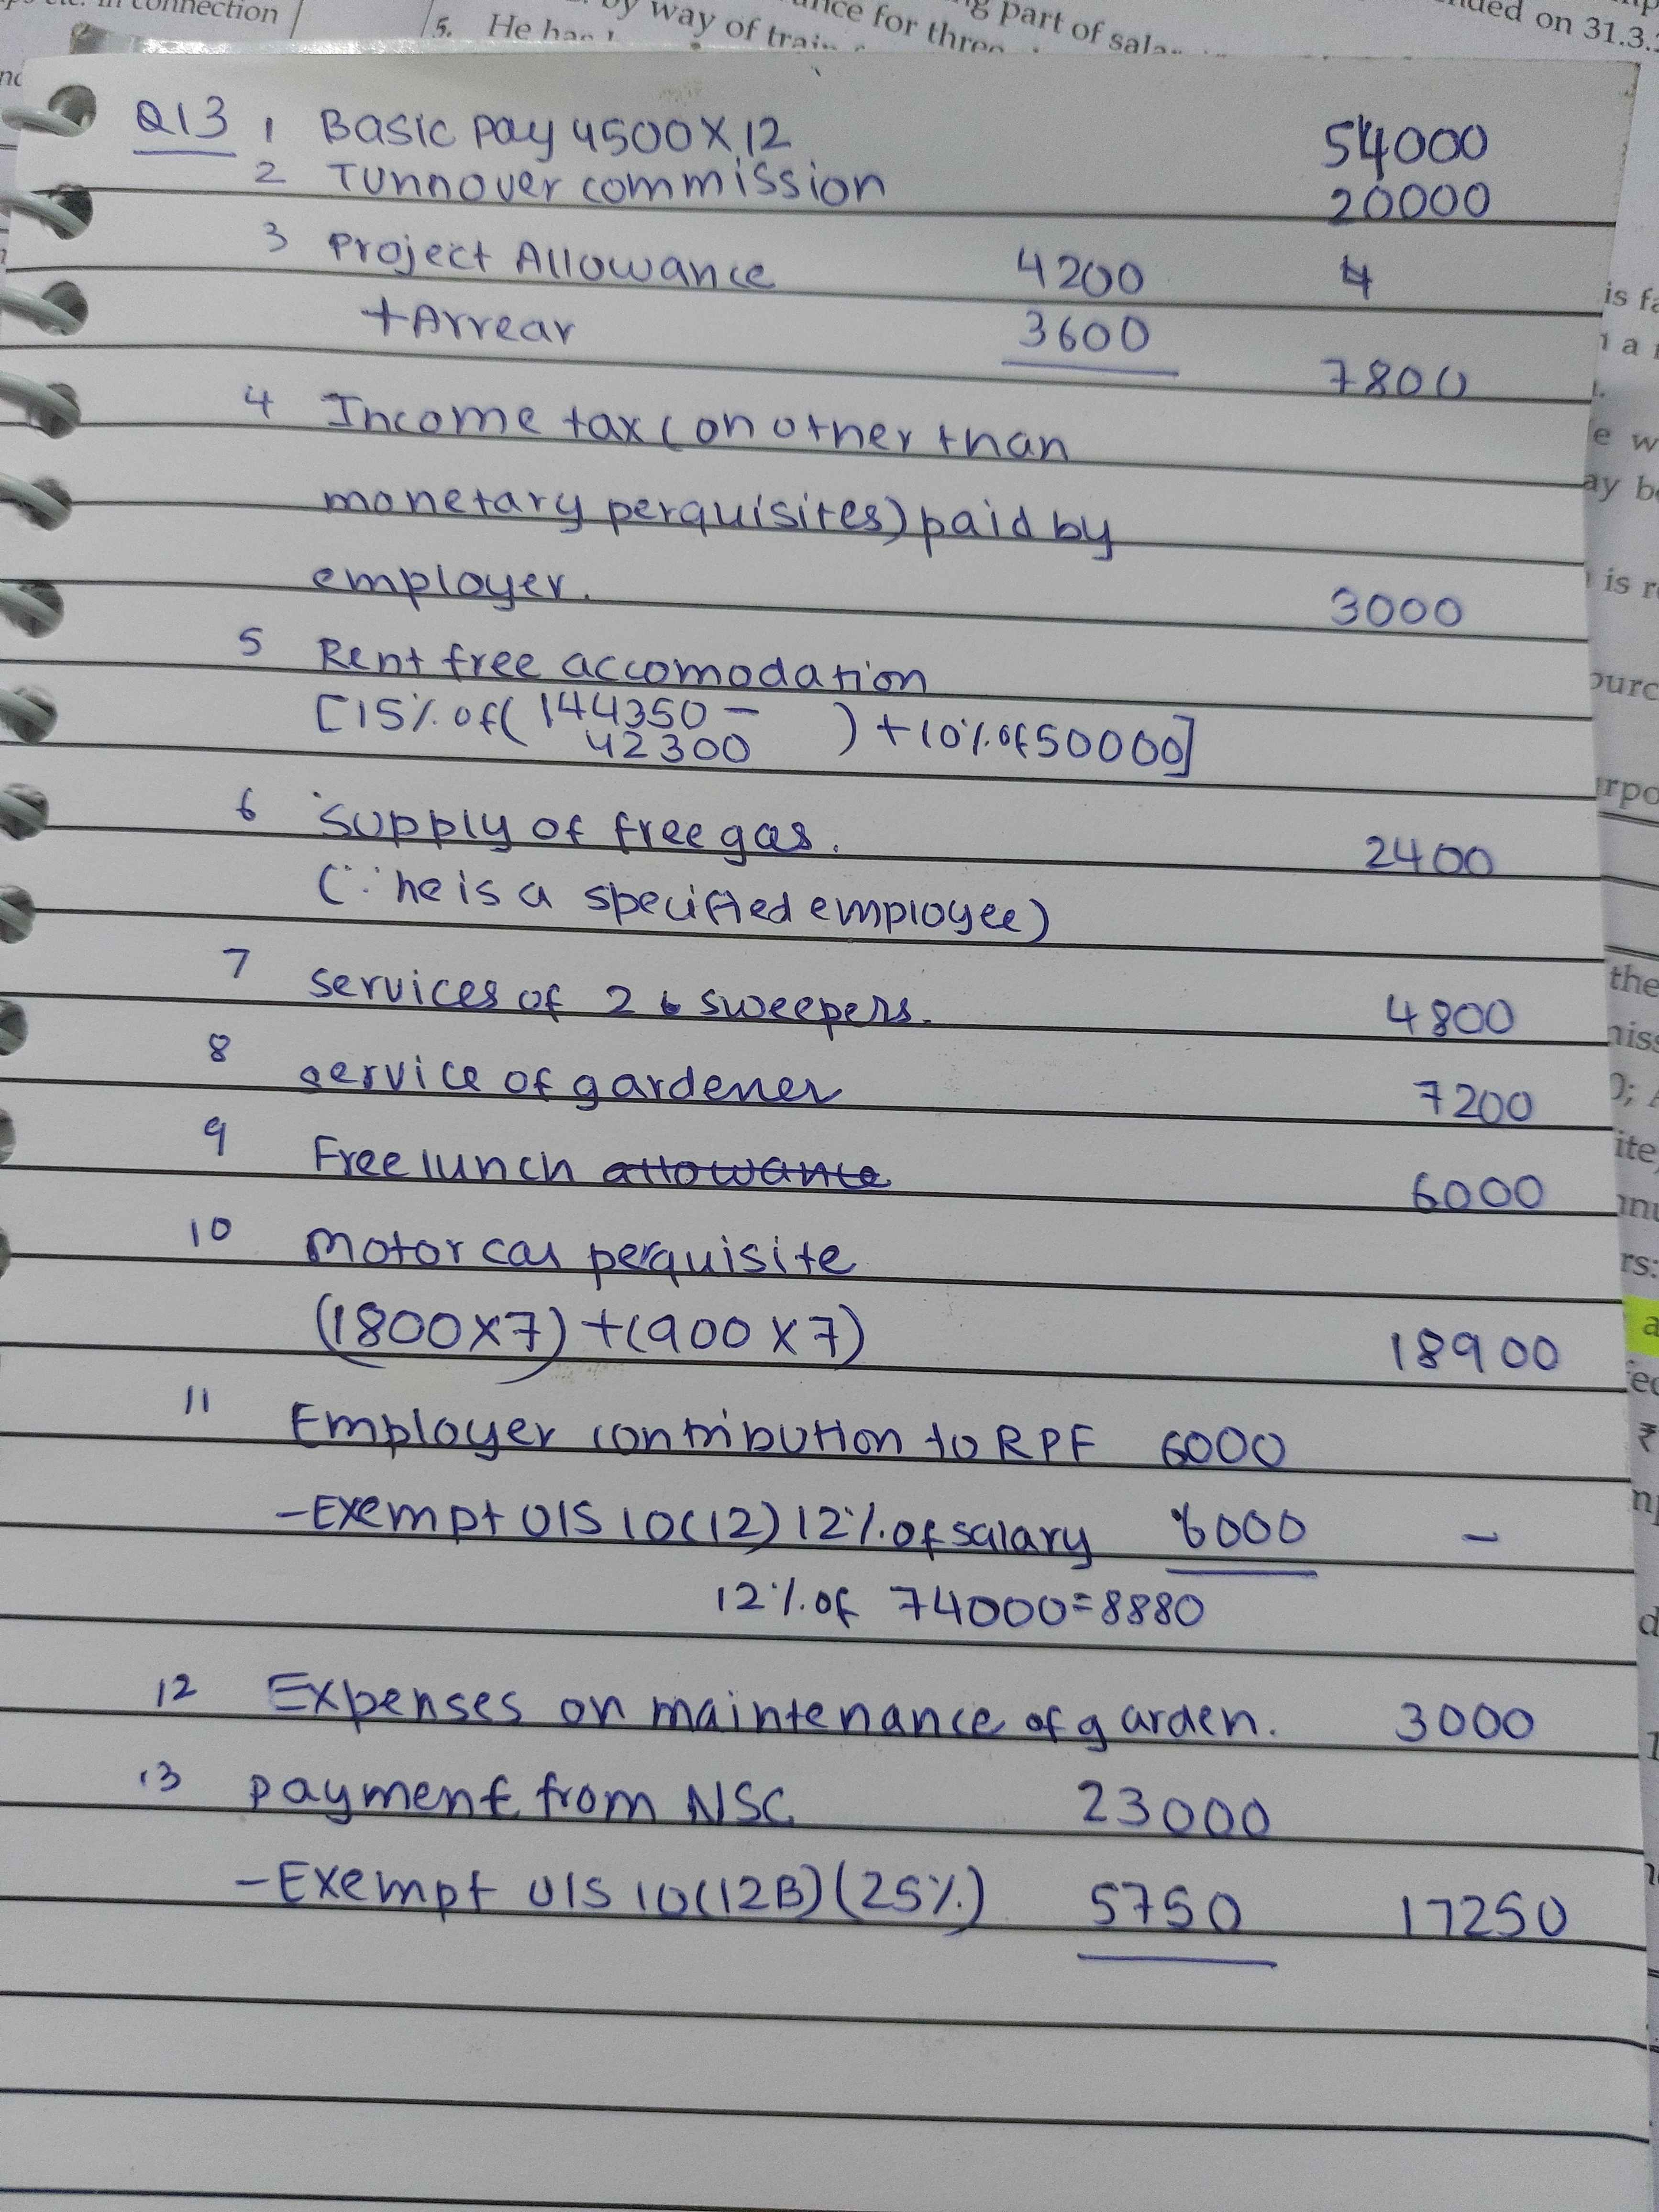 connection
5. He had
by way of train
nce for three
g part of salar
ded on 31.3.
Q13 1 Basic Pay 4500X12 54000
2 Tunnover commission 20000
3 Project Allowance 4200 4
+Arrear 3600
7800
4 Income tax (on other than
monetary perquisites) paid by
employer. 3000
5 Rent free accomodation
[15% of (144350 -
42300 ) + 10% of 50000]
6 Supply of free gas. 2400
(∵ he is a specified employee)
7 services of 2 sweepers. 4800
8 service of gardener 7200
9 Free lunch allowance 6000
10 Motor car perquisite
(1800X7)+(900X7) 18900
11 Employer contribution to RPF 6000
-Exempt U/S 10(12) 12% of salary 6000 -
12% of 74000=8880
12 Expenses on maintenance of garden. 3000
13 Payment from NSC 23000
-Exempt U/S 10(12B) (25%) 5750 17250